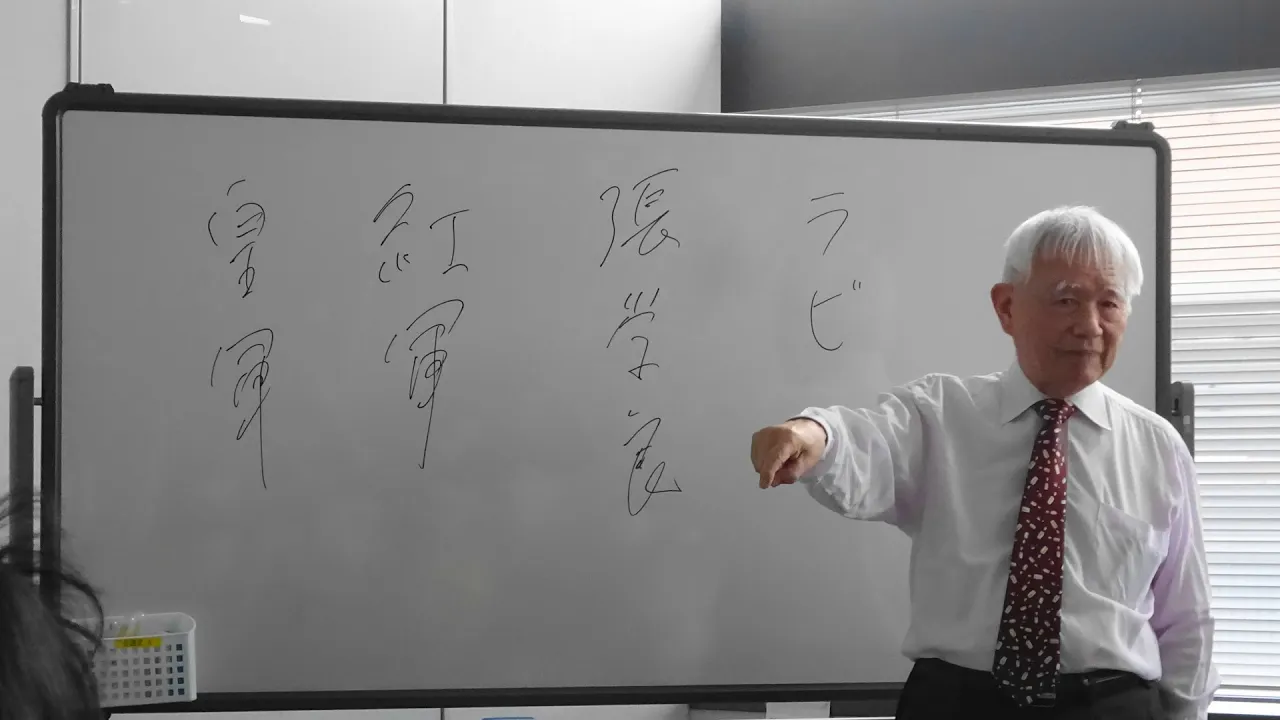 ラビ
張学良
紅軍
皇軍